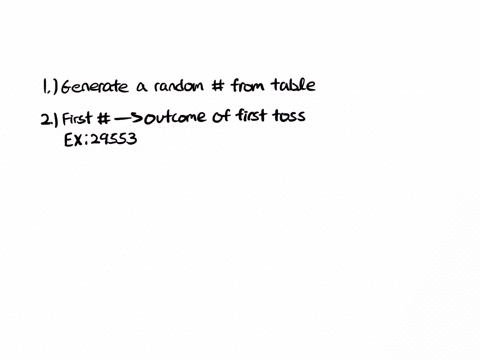 1.) Generate a random # from table
2.) First # —> outcome of first toss
EX: 29553